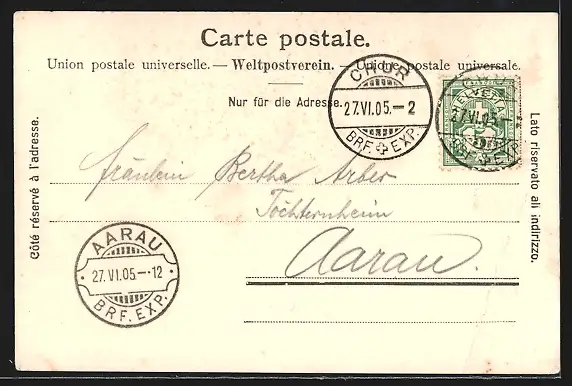 Carte postale.
Union postale universelle. — Weltpostverein. — Unione postale universale.
Nur für die Adresse.
Côté réservé à l'adresse.
Lato riservato all indirizzo.
CHUR
27.VI.05.–2
BRF. EXP.
HELVETIA
27.VI.05.–
EXP.
Fräulein Bertha Arber
Töchternheim
Aarau.
AARAU
27.VI.05–·12
BRF. EXP.